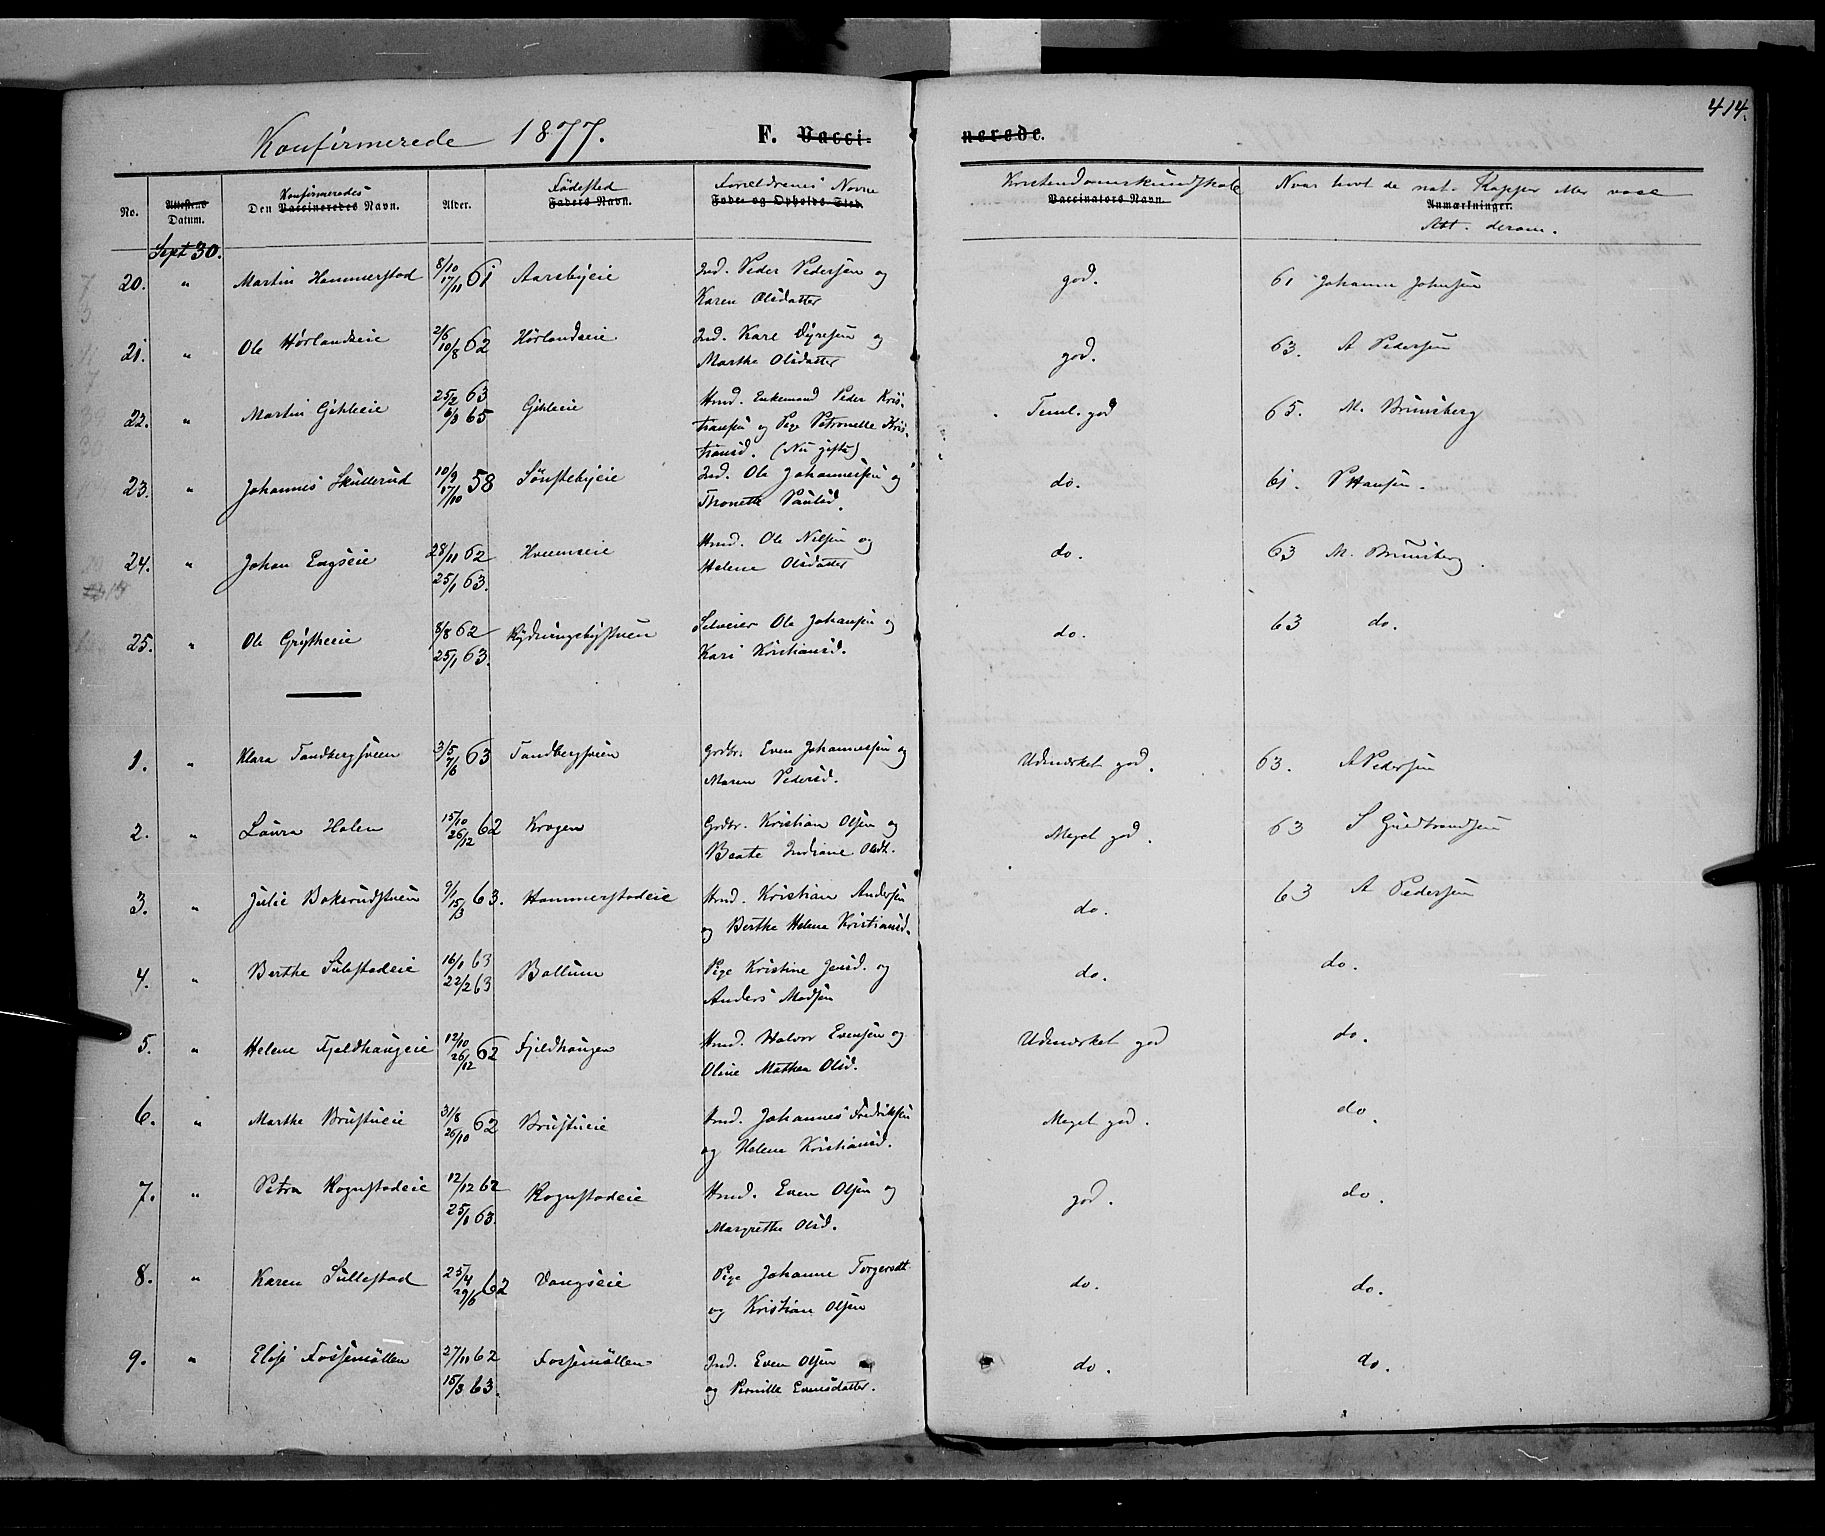 414.
Konfirmerede 1877. F. Vacci- nerede.
No. Attestens Datum. Den Konfirmeredes Vaccineredes Navn. Alder. Fødested Faders Navn. Forældrenes Navne Føde- og Opholds-Sted. Kristendomskundskab Vaccinators Navn. Anmærkninger. Att. derom.
Sept 30.
20. " Martin Hammerstad 8/10 17/11 61 Aarsbyeie Ind. Peder Pedersen og god. 61 Johanna Johnsen
Karen Olsdatter
21. " Ole Hørlandseie 2/6 10/8 62 Hørlandseie Ind. Karl Dyresen og god. 63. A Pedersen
Marthe Olsdatter
22. " Martin Gihleeie 25/2 63 6/3 65 Gihleeie Hmd. Enkemand Peder Kris- Teml. god 65. M. Brunsberg
tiansen og Pige Petronelle Kris-
tiansd. (Nu gifte)
23. " Johannes Skullerud 10/9 17/10 58 Sønstebyeie Ind. Ole Johannessen og do. 61. P Hansen.
Thonette Paulsd.
24. " Johan Engseie 28/11 62 25/1 63. Hveemseie Hmd. Ole Nilsen og do. 63 M. Brunsberg.
Helene Olsdatter
25. " Ole Grytheeie 8/8 62 25/1 63. Rydningsbystuen Selveier Ole Johansen og do. 63 do.
Kari Kristiansd.
1. " Klara Tandbergsveen 3/5 7/6 63 Tandbergsveen Grdbr. Even Johannessen og Udmærket god. 63. A Pedersen
Maren Pedersd.
2. " Laura Holen 15/10 26/12 62 Krogen Grdbr. Kristian Olsen og Meget god. 63 S Gudbrandsen
Beate Indiane Olsdt.
3. " Julie Boksrudstuen 9/1 15/3 63. Hammerstadeie Hmd. Kristian Andersen do. 63 A Pedersen
og Berthe Helene Kristiansd.
4. " Berthe Sulestadeie 16/1 63 22/2 63 Bollum Pige Kristine Jensd. og do. do.
Anders Madsen
5. " Helene Fjeldhaugeie 12/10 26/12 62 Fjeldhaugen Hmd. Halvor Evensen og Udmærket god do.
Oline Mathea Olsd.
6. " Marthe Brustueie 31/8 26/10 62 Brustueie Hmd. Johannes Fredriksen Meget god. do.
og Helene Kristiansd.
7. " Petra Rognstadeie 12/12 62 25/1 63. Rognstadeie Hmd. Even Olsen og god. do.
Margrethe Olsd.
8. " Karen Sullestad 25/4 29/6 62 Vangseie Pige Johanne Torgersdt. do. do.
og Kristian Olsen
9. " Elise Fossemøllen 27/11 62 15/3 63. Fossemøllen Ind. Even Olsen do. do.
og Pernille Evensdatter.